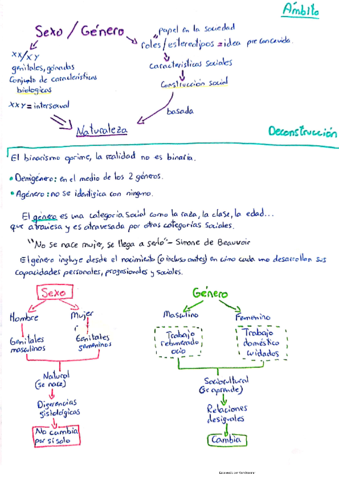 Ámbito
Sexo / Género
papel en la sociedad
roles/estereotipos = idea preconcebida
XX/XY
genitales, gónadas
Conjunto de características
biológicas
características sociales
Construcción social
XXY = intersexual
basada
Naturaleza
Deconstrucción
El binarismo oprime, la realidad no es binaria.
• Demigénero: en el medio de los 2 géneros.
• Agénero: no se identifica con ninguno.
El género es una categoría social como la raza, la clase, la edad...
que atraviesa y es atravesada por otras categorías sociales.
"No se nace mujer, se llega a serlo" - Simone de Beauvoir
El género influye desde el nacimiento (o incluso antes) en cómo cada uno desarrollan sus
capacidades personales, profesionales y sociales.
Sexo
Género
Hombre
Mujer
Masculino
Femenino
Genitales
masculinos
Genitales
femeninos
Trabajo
remunerado
ocio
Trabajo
doméstico
cuidados
Natural
(se nace)
Sociocultural
(se aprende)
Diferencias
fisiológicas
Relaciones
desiguales
No cambia
por sí solo
Cambia